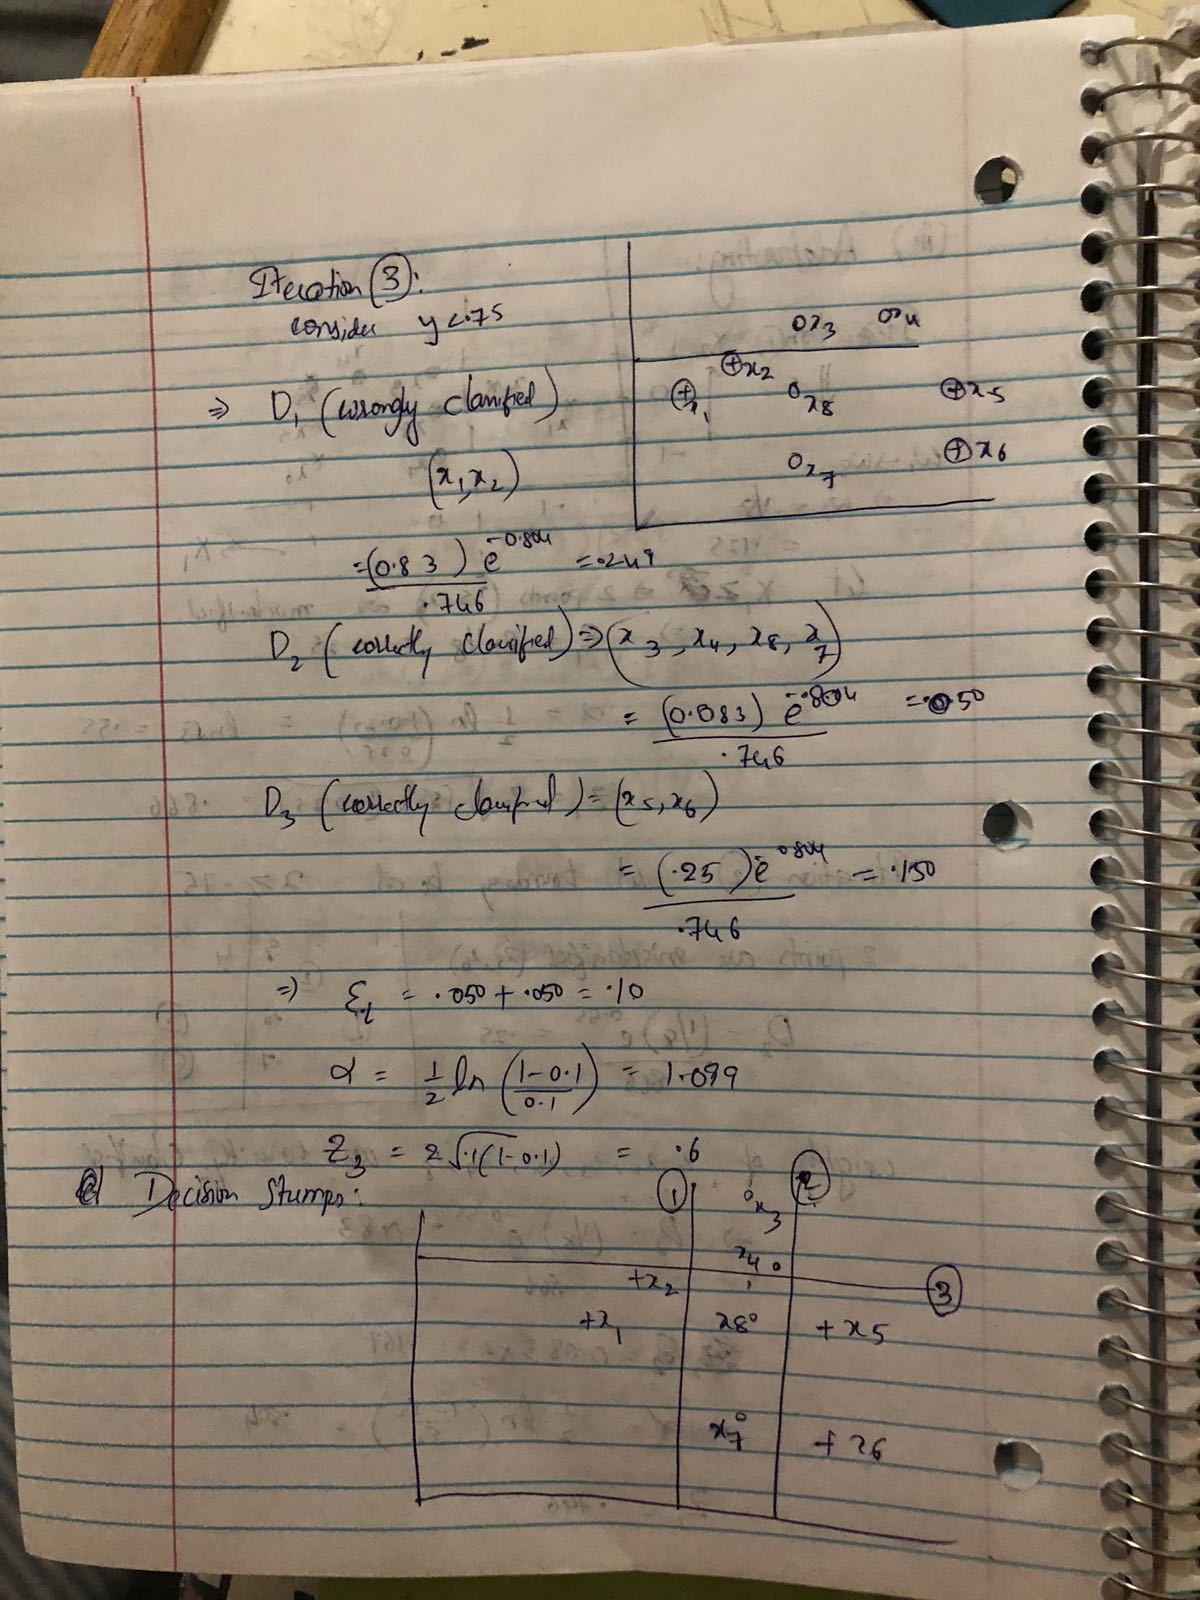 Iteration (3):
consider y<.75
ox3 ox4
⊕x2
⊕x1 ox8 ⊕x5
ox7 ⊕x6
⇒ D1 (wrongly classified)
(x1, x2)
= (0.83) e^-0.804 / .746 = .249
D2 (correctly classified) ⇒ (x3, x4, x8, x7)
= (0.083) e^-.804 / .746 = .050
D3 (correctly classified) = (x5, x6)
= (.25) e^-0.804 / .746 = .150
⇒ Σt = .050 + .050 = .10
α = 1/2 ln (1-0.1 / 0.1) = 1.099
Z3 = 2√.1(1-0.1) = .6
Decision Stumps:
1 2
ox3
x4 o
3
+x2
+x1 x8o +x5
x7o +x6